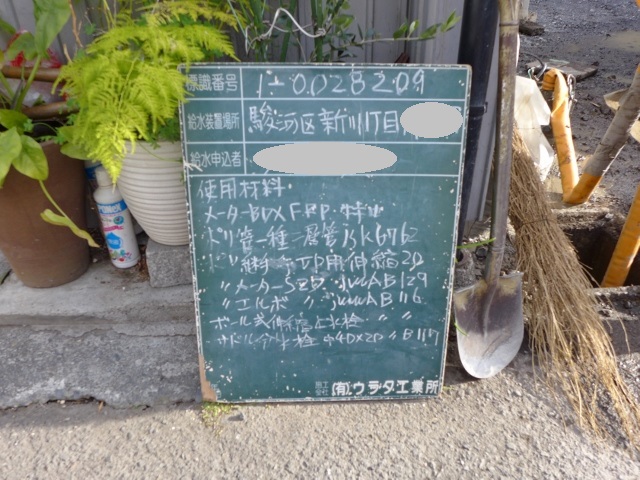 標識番号 1-0.028209
給水装置場所 駿河区新川1丁目
給水申込者
使用材料.
メーターBOX FRP.特
ポリ管一種二層管 JSK6762
ポリ継手 用伸縮20
〃メーター JWWAB129
〃エルボ 〃 JWWAB116
ボール式 止水栓 〃 〃
サドル分水栓 φ40×20 〃 B117
施工会社 (有)ウラタ工業所